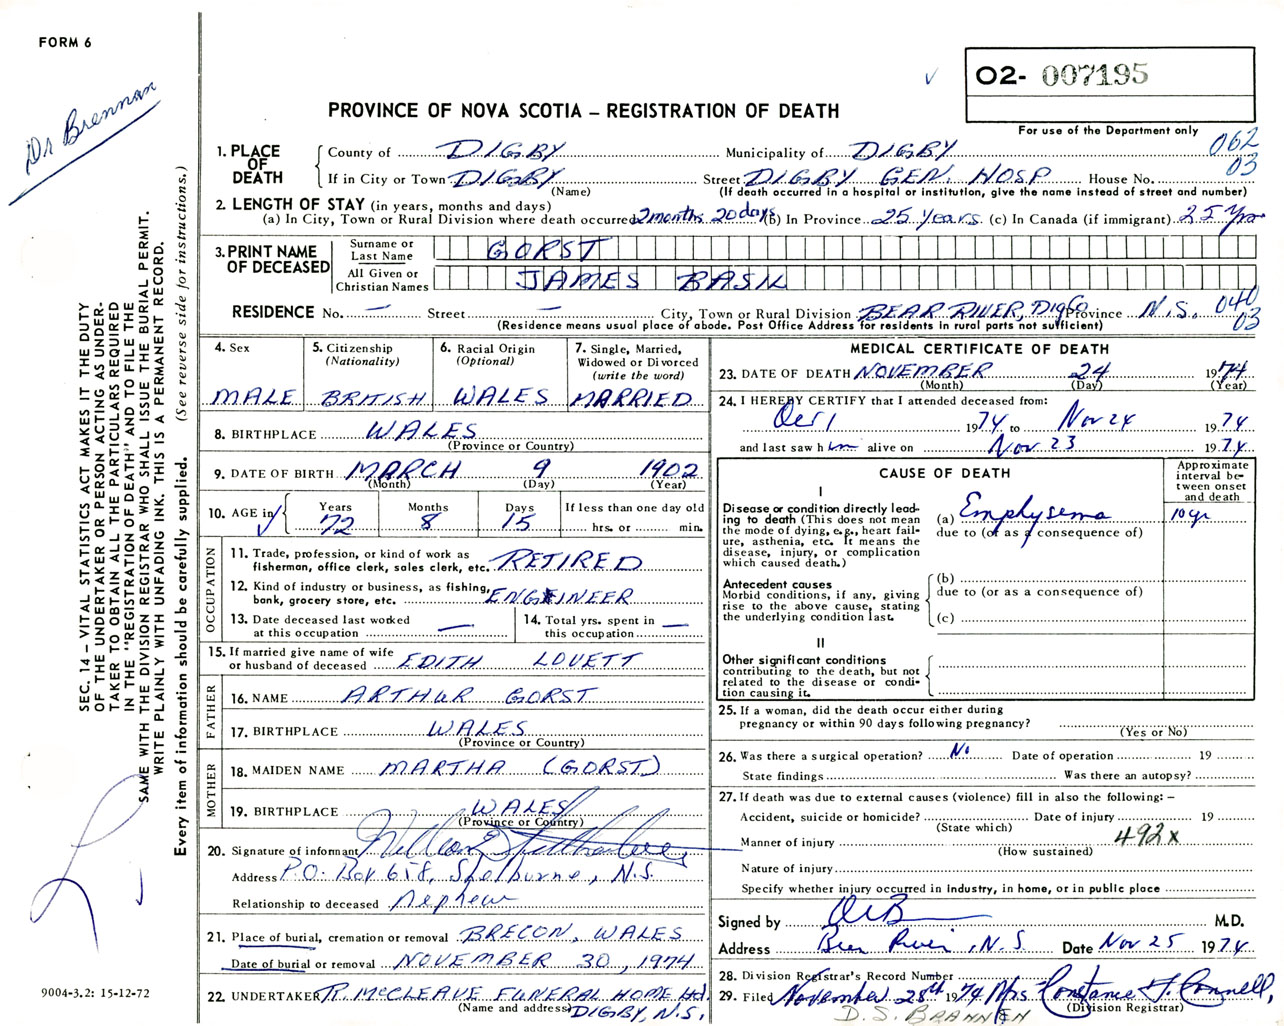 FORM 6
Dr Brennan
O2- 007195
PROVINCE OF NOVA SCOTIA – REGISTRATION OF DEATH
For use of the Department only
062
03
1. PLACE OF DEATH
County of DIGBY Municipality of DIGBY
If in City or Town DIGBY Street DIGBY GEN. HOSP House No.
(Name) (If death occurred in a hospital or institution, give the name instead of street and number)
2. LENGTH OF STAY (in years, months and days)
(a) In City, Town or Rural Division where death occurred 2 months 20 days (b) In Province 25 years (c) In Canada (if immigrant) 25 Yrs
3. PRINT NAME OF DECEASED
Surname or Last Name GORST
All Given or Christian Names JAMES BASIL
RESIDENCE No. — Street — City, Town or Rural Division BEAR RIVER, DIG Co Province N.S. 040
03
(Residence means usual place of abode. Post Office Address for residents in rural parts not sufficient)
4. Sex MALE
5. Citizenship (Nationality) BRITISH
6. Racial Origin (Optional) WALES
7. Single, Married, Widowed or Divorced (write the word) MARRIED
8. BIRTHPLACE WALES
(Province or Country)
9. DATE OF BIRTH MARCH 9 1902
(Month) (Day) (Year)
10. AGE in Years 72 Months 8 Days 15 If less than one day old hrs. or min.
OCCUPATION
11. Trade, profession, or kind of work as fisherman, office clerk, sales clerk, etc. RETIRED
12. Kind of industry or business, as fishing, bank, grocery store, etc. ENGINEER
13. Date deceased last worked at this occupation —
14. Total yrs. spent in this occupation —
15. If married give name of wife or husband of deceased EDITH LOVETT
FATHER
16. NAME ARTHUR GORST
17. BIRTHPLACE WALES
(Province or Country)
MOTHER
18. MAIDEN NAME MARTHA (GORST)
19. BIRTHPLACE WALES
(Province or Country)
20. Signature of informant
Address P.O. Box 618, Shelburne, N.S.
Relationship to deceased Nephew
21. Place of burial, cremation or removal BRECON, WALES
Date of burial or removal NOVEMBER 30, 1974
22. UNDERTAKER R. McCLEAVE FUNERAL HOME Ltd.
(Name and address) DIGBY, N.S.
MEDICAL CERTIFICATE OF DEATH
23. DATE OF DEATH NOVEMBER 24 1974
(Month) (Day) (Year)
24. I HEREBY CERTIFY that I attended deceased from:
Oct 1 1974 to Nov 24 1974
and last saw him alive on Nov 23 1974
CAUSE OF DEATH
Approximate interval between onset and death
I
Disease or condition directly leading to death (This does not mean the mode of dying, e.g., heart failure, asthenia, etc. It means the disease, injury, or complication which caused death.)
(a) Emphysema 10 yr
due to (or as a consequence of)
Antecedent causes
Morbid conditions, if any, giving rise to the above cause, stating the underlying condition last.
(b)
due to (or as a consequence of)
(c)
II
Other significant conditions contributing to the death, but not related to the disease or condition causing it.
25. If a woman, did the death occur either during pregnancy or within 90 days following pregnancy?
(Yes or No)
26. Was there a surgical operation? No Date of operation 19
State findings Was there an autopsy?
27. If death was due to external causes (violence) fill in also the following: –
Accident, suicide or homicide? Date of injury 19
(State which)
Manner of injury 492x
(How sustained)
Nature of injury
Specify whether injury occurred in industry, in home, or in public place
Signed by M.D.
Address Bear River, N.S. Date Nov 25 1974
28. Division Registrar's Record Number
29. Filed November 28th 1974 Mrs Constance F. Connell,
(Division Registrar)
D.S. BRANNEN
SEC. 14 – VITAL STATISTICS ACT MAKES IT THE DUTY
OF THE UNDERTAKER OR PERSON ACTING AS UNDER-
TAKER TO OBTAIN ALL THE PARTICULARS REQUIRED
IN THE "REGISTRATION OF DEATH" AND TO FILE THE
SAME WITH THE DIVISION REGISTRAR WHO SHALL ISSUE THE BURIAL PERMIT.
WRITE PLAINLY WITH UNFADING INK. THIS IS A PERMANENT RECORD.
Every item of information should be carefully supplied. (See reverse side for instructions.)
9004-3.2: 15-12-72